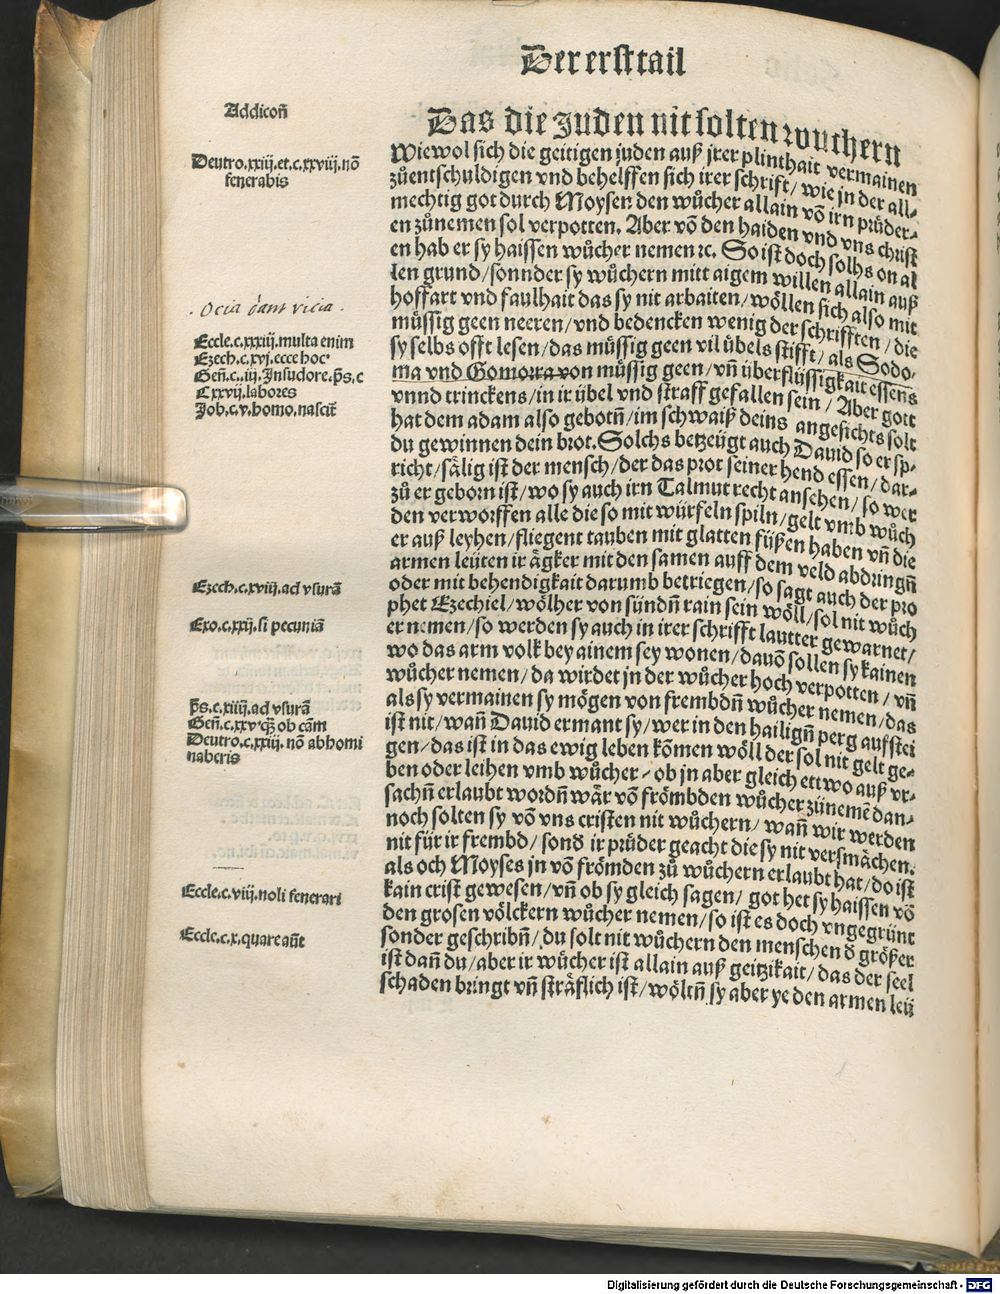 Der erst tail
Addicoñ
Das die Juden nit solten wuchern
Deutro.xxiij.et.c.xxviij.nõ
fenerabis
Wiewol sich die geitigen juden auß jrer plinthait vermainen
zůentschuldigen vnd behelffen sich irer schrift/ wie jn der all⸗
mechtig got durch Moysen den wůcher allain võ irn prüder⸗
en zůnemen sol verpotten. Aber võ den haiden vnd vns christ
en hab er sy haissen wůcher nemen ꝛc. So ist doch solhs on al
len grund/sonnder sy wůchern mitt aigem willen allain auß
hoffart vnd faulhait das sy nit arbaiten/ wöllen sich also mit
müssig geen neeren/ vnd bedencken wenig der schrifften/ die
sy selbs offt lesen/das müssig geen vil übels stifft/ als Sodo⸗
ma vnd Gomorra von müssig geen/ vñ überflüssigkait essens
vnnd trinckens/in ir übel vnd straff gefallen sein/ Aber gott
hat dem adam also gebotñ/im schwaiß deins angesichts solt
du gewinnen dein brot. Solchs betzeügt auch Dauid so er sp⸗
richt/sälig ist der mensch/der das prot seiner hend essen/ dar⸗
zů er geborn ist/wo sy auch irn Talmut recht ansehen/ so wer
den verworffen alle die so mit würfeln spiln/gelt vmb wůch
er auß leyhen/fliegent tauben mit glatten füßen haben vñ die
armen leüten ir ägker mit den samen auff dem veld abdringñ
oder mit behendigkait darumb betriegen/so sagt auch der pro
phet Ezechiel/wölher von sündñ rain sein wöll/sol nit wůch
er nemen/so werden sy auch in irer schrifft lautter gewarnet/
wo das arm volk bey ainem sey wonen/dauõ sollen sy kainen
wůcher nemen/ da wirdet jn der wůcher hoch verpotten/ vñ
als sy vermainen sy mögen von frembdñ wůcher nemen/das
ist nit/wañ Dauid ermant sy/wer in den hailigñ perg aufstei
gen/das ist in das ewig leben kõmen wöll der sol nit gelt ge⸗
ben oder leihen vmb wůcher/ ob jn aber gleich ettwo auß vr⸗
sachñ erlaubt wordñ wär võ frömbden wůcher zůnemẽ dan⸗
noch solten sy võ vns cristen nit wůchern/ wañ wir werden
nit für ir frembd/ sond̕ ir prüder geacht die sy nit versmächen.
als och Moyses jn võ frömden zů wůchern erlaubt hat/do ist
kain crist gewesen/vñ ob sy gleich sagen/ got het sy haissen võ
den grosen völckern wůcher nemen/so ist es doch vngegrünt
sonder geschribñ/du solt nit wůchern den menschen d̕ größer
ist dañ du/aber ir wůcher ist allain auß geitzikait/das der seel
schaden bringt vñ sträflich ist/wöltñ sy aber ye den armen leü
. Ocia dant vicia .
Eccle.c.xxxiij.multa enim
Ezech.c.xvj.ecce hoc
Geñ.c..iij.In sudore.p̃s.c
Cxxvij.labores
Job.c.v.homo.nascit̃
Ezech.c.xviij.ad vsurã
Exo.c.xxij.si pecuniã
p̃s.c.xiiij.ad vsurã
Geñ.c.xxv.q̃ ob cãm
Deutro.c.xxiij.nõ abhomi
naberis
Eccle.c.viij.noli fenerari
Eccle.c.x.quare aũt
Digitalisierung gefördert durch die Deutsche Forschungsgemeinschaft - DFG